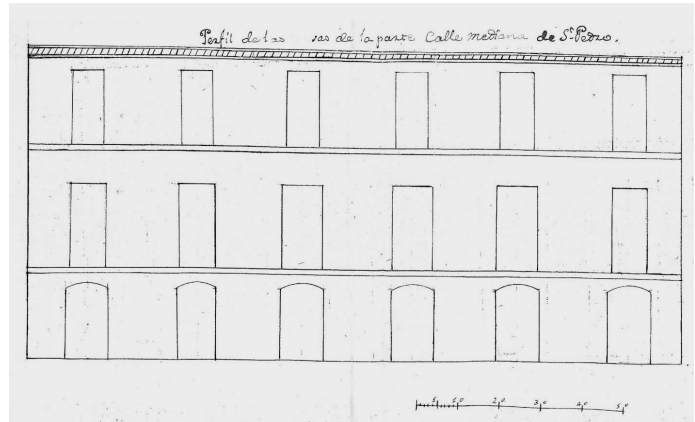 Perfil de las sas de la parte Calle mediana de Sn. Pedro.
5 10 20 30 40 50